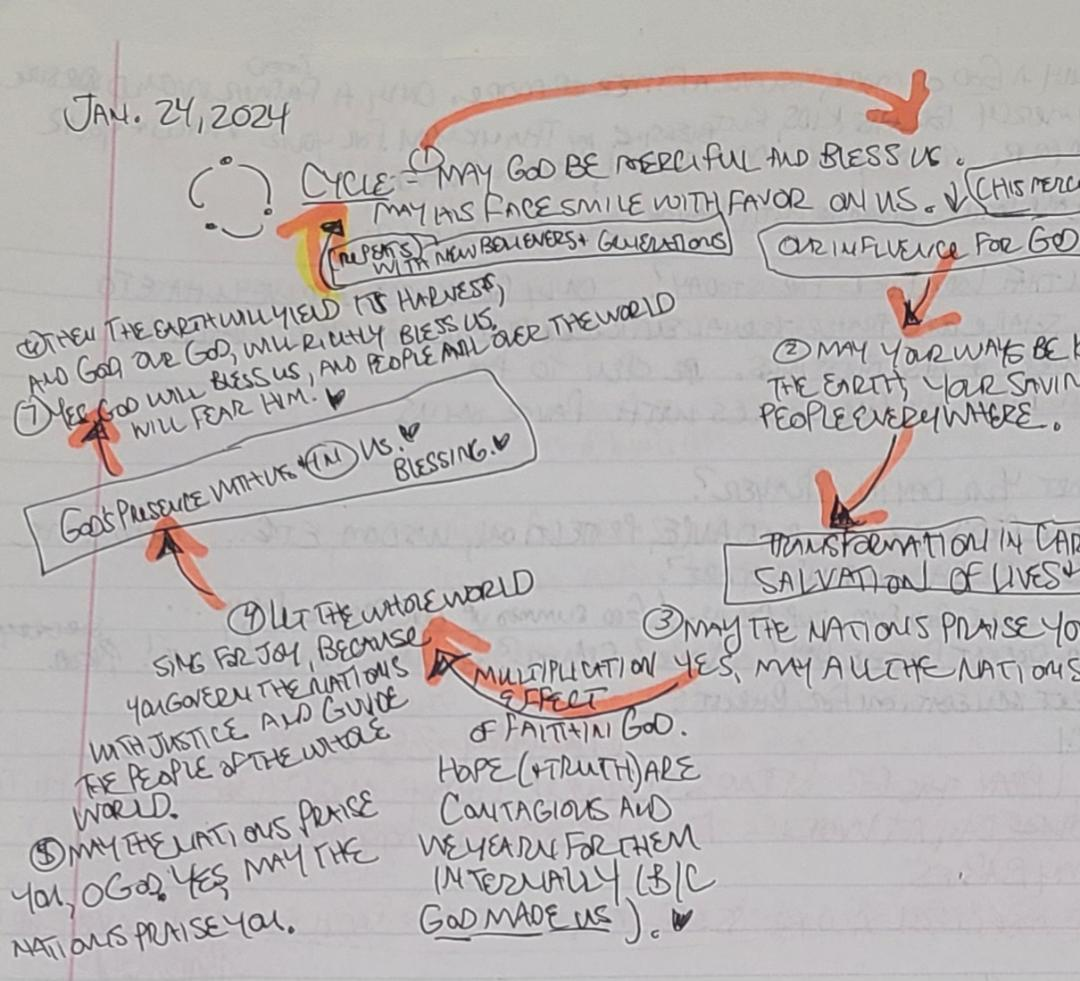 JAN. 24, 2024
CYCLE = ① MAY GOD BE MERCIFUL AND BLESS US.
MAY HIS FACE SMILE WITH FAVOR ON US. ↓ (HIS MERC
(REPEATS)
WITH NEW BELIEVERS + GENERATIONS
OUR INFLUENCE FOR GOD
② MAY YOUR WAYS BE K
THE EARTH, YOUR SAVIN
PEOPLE EVERYWHERE.
TRANSFORMATION IN CAR
SALVATION OF LIVES +
③ MAY THE NATIONS PRAISE YO
YES, MAY ALL THE NATIONS
MULTIPLICATION
EFFECT
OF FAITH IN GOD.
HOPE (+TRUTH) ARE
CONTAGIOUS AND
WE YEARN FOR THEM
INTERNALLY (B/C
GOD MADE US). ♥
④ LET THE WHOLE WORLD
SING FOR JOY, BECAUSE
YOU GOVERN THE NATIONS
WITH JUSTICE AND GUIDE
THE PEOPLE OF THE WHOLE
WORLD.
⑤ MAY THE NATIONS PRAISE
YOU, O GOD. YES, MAY THE
NATIONS PRAISE YOU.
GOD'S PRESENCE WITH US + (IN) US. ♥
BLESSING. ♥
⑥ THEN THE EARTH WILL YIELD ITS HARVESTS,
AND GOD, OUR GOD, WILL RICHLY BLESS US.
⑦ YES, GOD WILL BLESS US, AND PEOPLE ALL OVER THE WORLD
WILL FEAR HIM. ♥